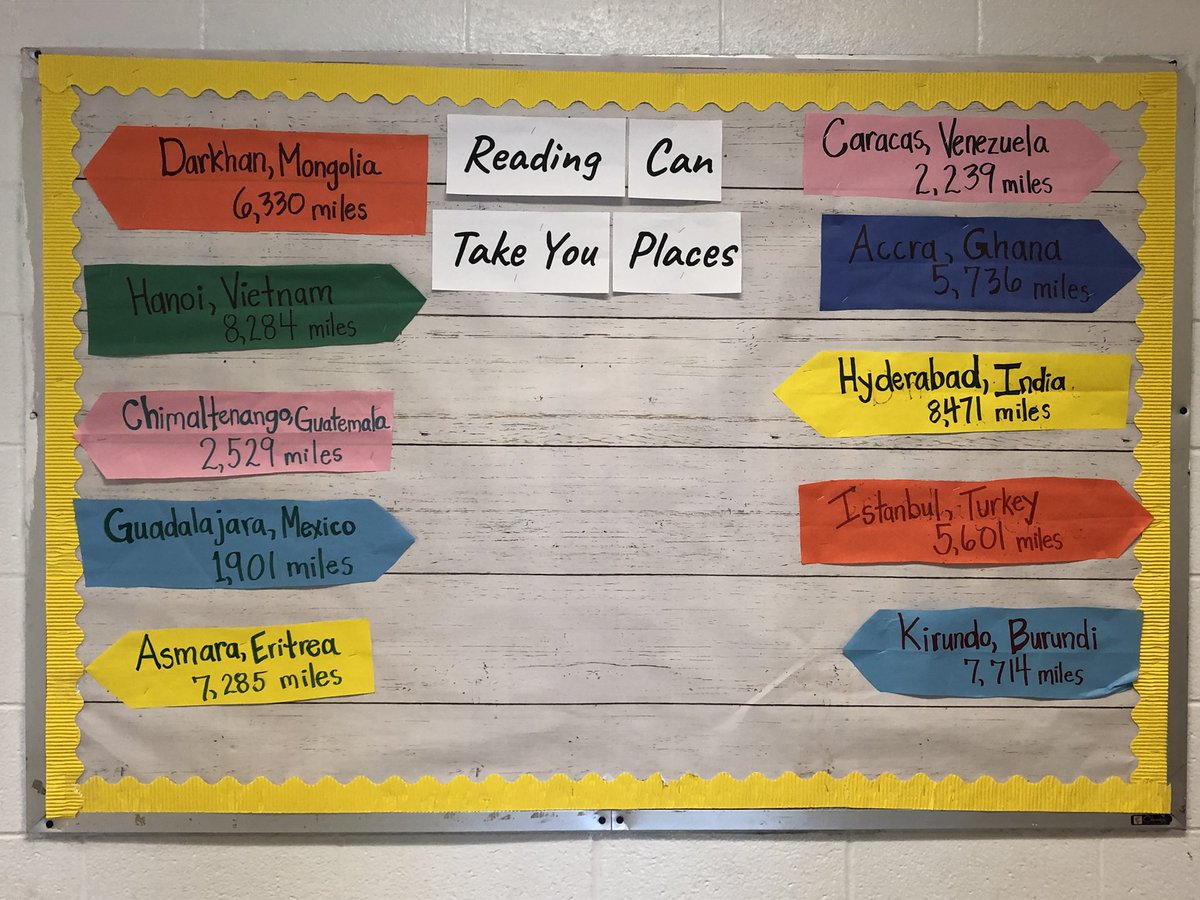 Reading Can
Take You Places
Darkhan, Mongolia
6,330 miles
Hanoi, Vietnam
8,284 miles
Chimaltenango, Guatemala
2,529 miles
Guadalajara, Mexico
1,901 miles
Asmara, Eritrea
7,285 miles
Caracas, Venezuela
2,239 miles
Accra, Ghana
5,736 miles
Hyderabad, India
8471 miles
Istanbul, Turkey
5,601 miles
Kirundo, Burundi
7,714 miles